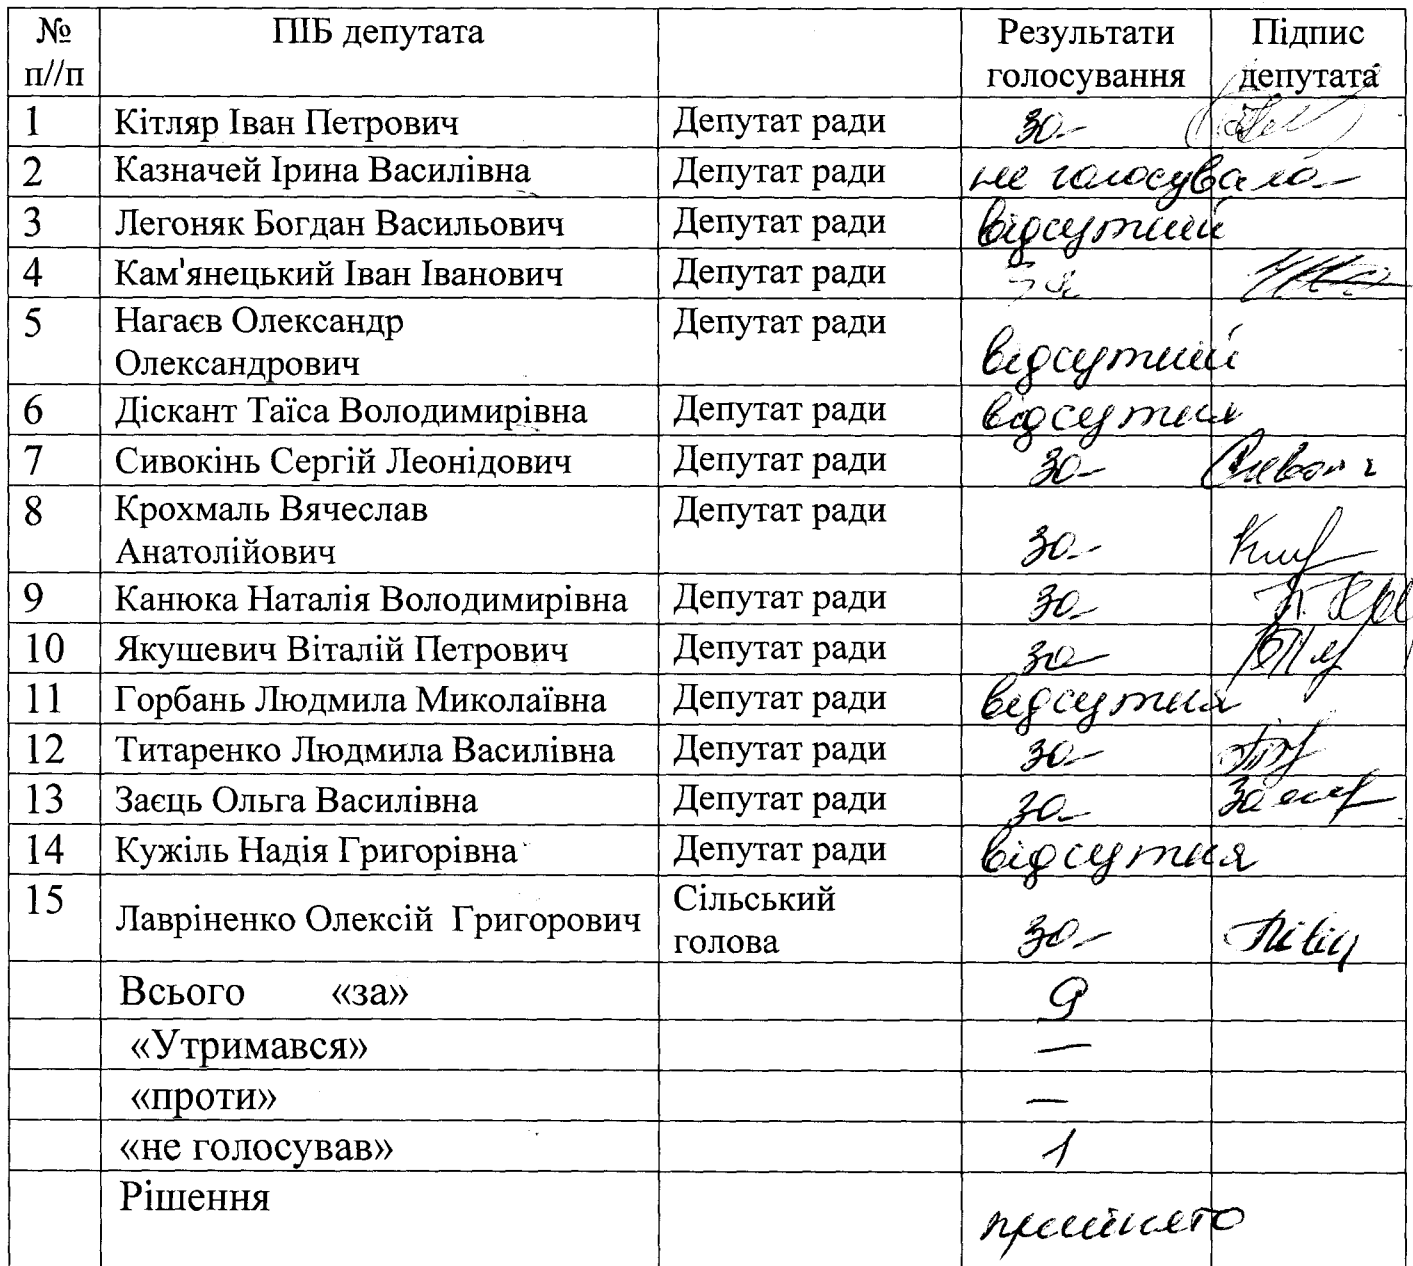 № ПІБ депутата Результати Підпис
п//п голосування депутата
1 Кітляр Іван Петрович Депутат ради за
2 Казначей Ірина Василівна Депутат ради не голосувала
3 Легоняк Богдан Васильович Депутат ради відсутній
4 Кам'янецький Іван Іванович Депутат ради за
5 Нагаєв Олександр Депутат ради
Олександрович відсутній
6 Діскант Таїса Володимирівна Депутат ради відсутня
7 Сивокінь Сергій Леонідович Депутат ради за
8 Крохмаль Вячеслав Депутат ради
Анатолійович за
9 Канюка Наталія Володимирівна Депутат ради за
10 Якушевич Віталій Петрович Депутат ради за
11 Горбань Людмила Миколаївна Депутат ради відсутня
12 Титаренко Людмила Василівна Депутат ради за
13 Заєць Ольга Василівна Депутат ради за
14 Кужіль Надія Григорівна Депутат ради відсутня
15 Лавріненко Олексій Григорович Сільський
голова за
Всього «за» 9
«Утримався» —
«проти» —
«не голосував» 1
Рішення прийнято